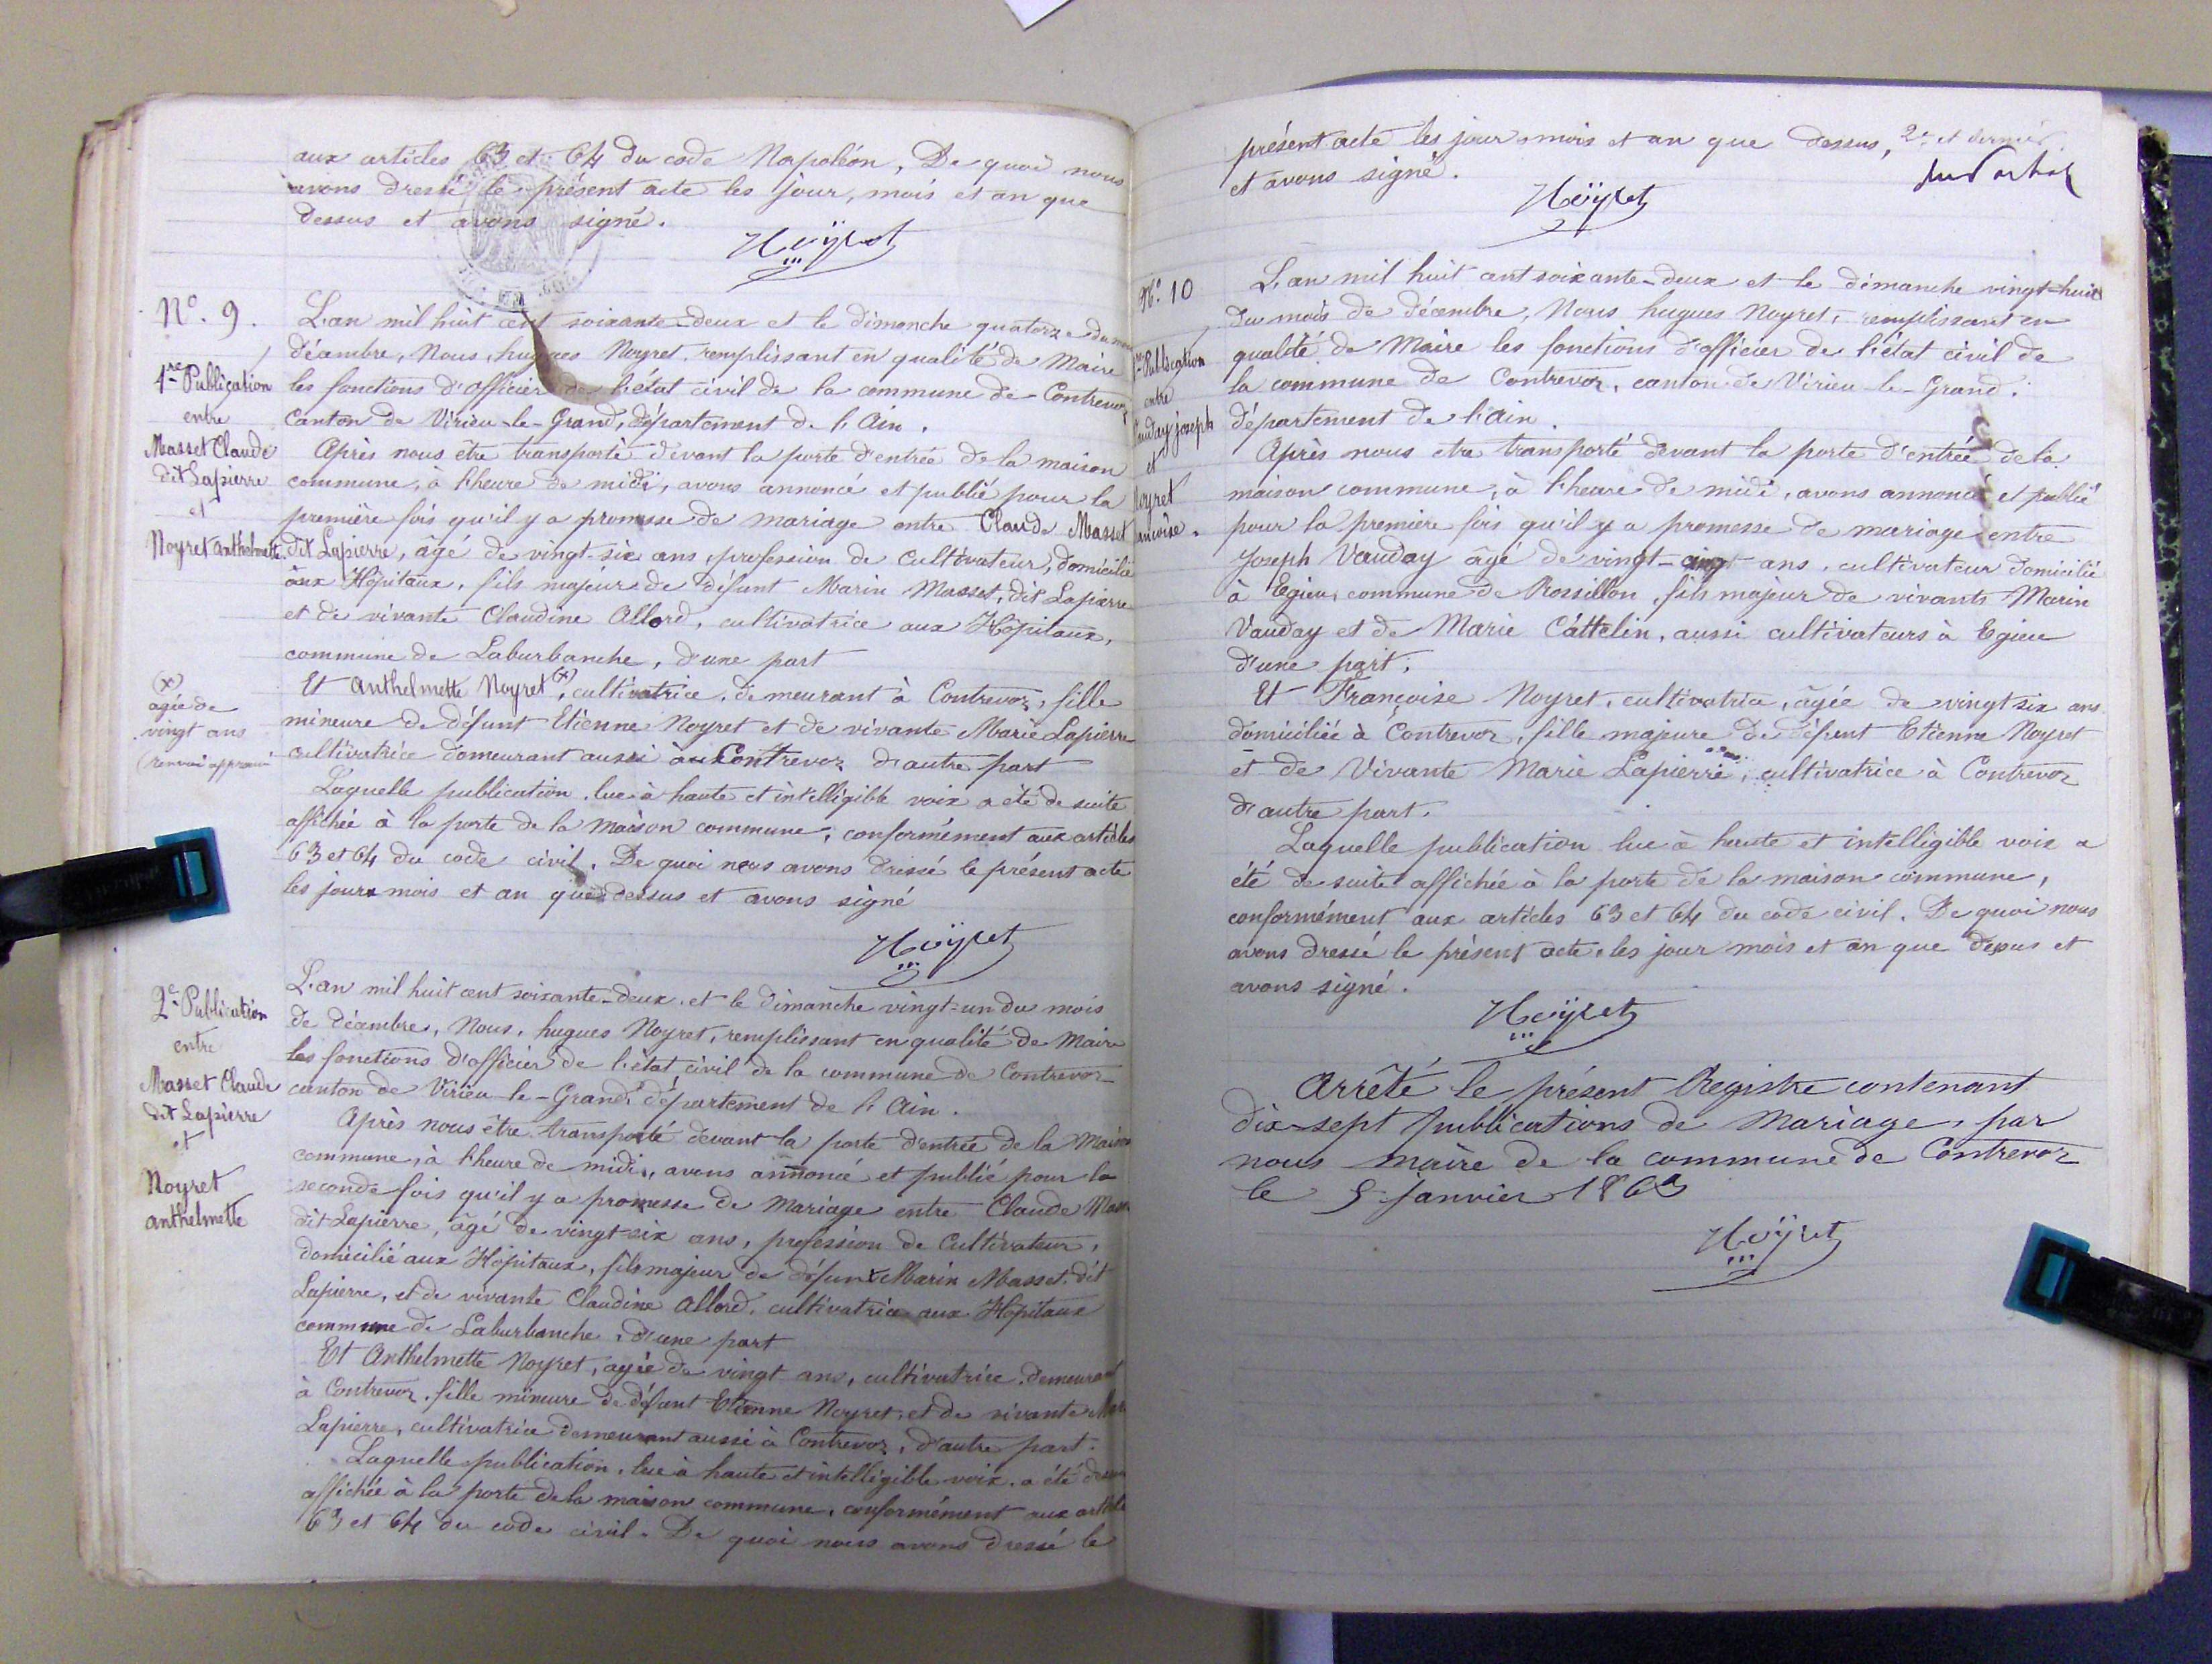 aux articles 63 et 64 du code Napoléon, De quoi nous
avons dressé le présent acte les jour, mois et an que
dessus et avons signé.
Noÿret
N°. 9.
1re Publication
entre
Masset Claude
dit Lapierre
et
Noyret anthelmette
L'an mil huit cent soixante-deux et le dimanche quatorze du mois
décembre, Nous, hugues Noyret, remplissant en qualité de Maire
les fonctions d'officier de l'état civil de la commune de Contrevoz
Canton de Virieu-le-Grand, département de l'Ain.
Après nous être transporté devant la porte d'entrée de la maison
commune, à l'heure de midi, avons annoncé et publié pour la
première fois qu'il y a promesse de mariage entre Claude Masset
dit Lapierre, âgé de vingt-six ans, profession de Cultivateur, domicilié
aux Hôpitaux, fils majeur de défunt Marin Masset, dit Lapierre
et de vivante Claudine Allord, cultivatrice aux Hôpitaux,
commune de Laburbanche, d'une part
Et Anthelmette Noyret (x), cultivatrice, demeurant à Contrevoz, fille
mineure de défunt Etienne Noyret et de vivante Marie Lapierre
cultivatrice demeurant aussi à Contrevoz d'autre part
(x)
agée de
vingt ans
(renvoi approuvé
Laquelle publication, lue à haute et intelligible voix a été de suite
affichée à la porte de la maison commune, conformément aux articles
63 et 64 du code civil. De quoi nous avons dressé le présent acte
les jour mois et an que dessus et avons signé
Noÿret
2e Publication
entre
Masset Claude
dit Lapierre
et
Noyret
anthelmette
L'an mil huit cent soixante-deux, et le dimanche vingt-un du mois
de décembre, Nous, hugues Noyret, remplissant en qualité de Maire
les fonctions d'officier de l'état civil de la commune de Contrevoz
canton de Virieu-le-Grand, département de l'Ain.
Après nous être transporté devant la porte d'entrée de la Maison
commune, à l'heure de midi, avons annoncé et publié pour la
seconde fois qu'il y a promesse de Mariage entre Claude Masset
dit Lapierre, âgé de vingt-six ans, profession de Cultivateur,
domicilié aux Hôpitaux, fils majeur de défunt Marin Masset, dit
Lapierre, et de vivante Claudine Allord, cultivatrice aux Hôpitaux
commune de Laburbanche, d'une part
Et Anthelmette Noyret, agée de vingt ans, cultivatrice, demeurant
à Contrevoz, fille mineure de défunt Etienne Noyret, et de vivante Marie
Lapierre, cultivatrice demeurant aussi à Contrevoz, d'autre part.
Laquelle publication, lue à haute et intelligible voix, a été de suite
affichée à la porte de la maison commune, conformément aux articles
63 et 64 du code civil. De quoi nous avons dressé le
présent acte les jour mois et an que dessus, 2e et dernier.
et avons signé.
Noÿret
N°. 10
1re Publication
entre
Vauday joseph
et
Noyret
ancoise.
L'an mil huit cent soixante-deux et le dimanche vingt-huit
du mois de décembre, Nous hugues Noyret, remplissant en
qualité de Maire les fonctions d'officier de l'état civil de
la commune de Contrevoz, canton de Virieu-le-Grand,
département de l'Ain.
Après nous etre transporté devant la porte d'entrée de la
maison commune, à l'heure de midi, avons annoncé et publié
pour la première fois qu'il y a promesse de mariage entre
Joseph Vauday âgé de vingt-cinq ans, cultivateur domicilié
à Egieu, commune de Rossillon, fils majeur de vivants Marin
Vauday et de Marie Cattelin, aussi cultivateurs à Egieu
d'une part.
Et Françoise Noyret, cultivatrice, âgée de vingt six ans
domiciliée à Contrevoz, fille majeure de défunt Etienne Noyret
et de Vivante Marie Lapierre, cultivatrice à Contrevoz
d'autre part.
Laquelle publication lue à haute et intelligible voix a
été de suite affichée à la porte de la maison commune,
conformément aux articles 63 et 64 du code civil. De quoi nous
avons dressé le présent acte, les jour mois et an que dessus et
avons signé.
Noÿret
Arrêté le présent Registre contenant
dix-sept publications de Mariage, par
nous maire de la commune de Contrevoz
le 5 janvier 1863
Noÿret